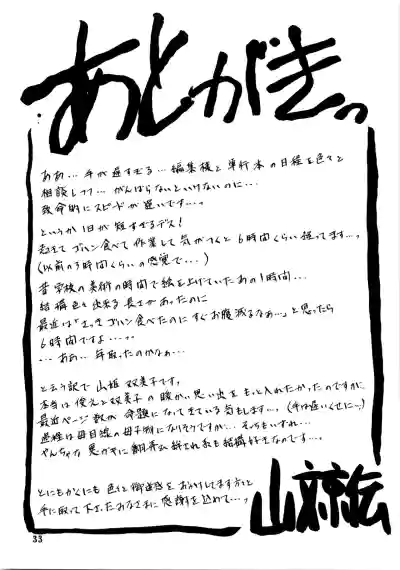 あとがきっ
ああ…手が遅すぎる…編集様と単行本の日程を色々と
相談しつつ…がんばらないといけないのに…
致命的にスピードが遅いです…。
というか1日が短すぎるデス!
起きてゴハン食べて作業して気がつくと6時間くらい経ってます…。
(以前の3時間くらいの感覚で…)
昔学校の美術の時間で絵を上げていたあの1時間…
結構色々出来る長さがあったのに
最近は「さっきゴハン食べたのにすぐお腹減るなあ…」と思ったら
6時間ですよ……。
…ああ…年取ったのかなぁ…
と言う訳で山姫 双美子です。
本当は俊介と双美子の暖かい思い出をもっと入れたかったのですが、
最近ページ数が命題になってきている気もします…。(手は遅いくせに…)
過程は母目線の母子物になりそうですが…それもいずれ…
やんちゃな悪ガキに翻弄される話も結構好きなのです…。
とにもかくにも色々御迷惑をおかけしてます方々と
手に取って下さったみなさまに感謝を込めて…。
33